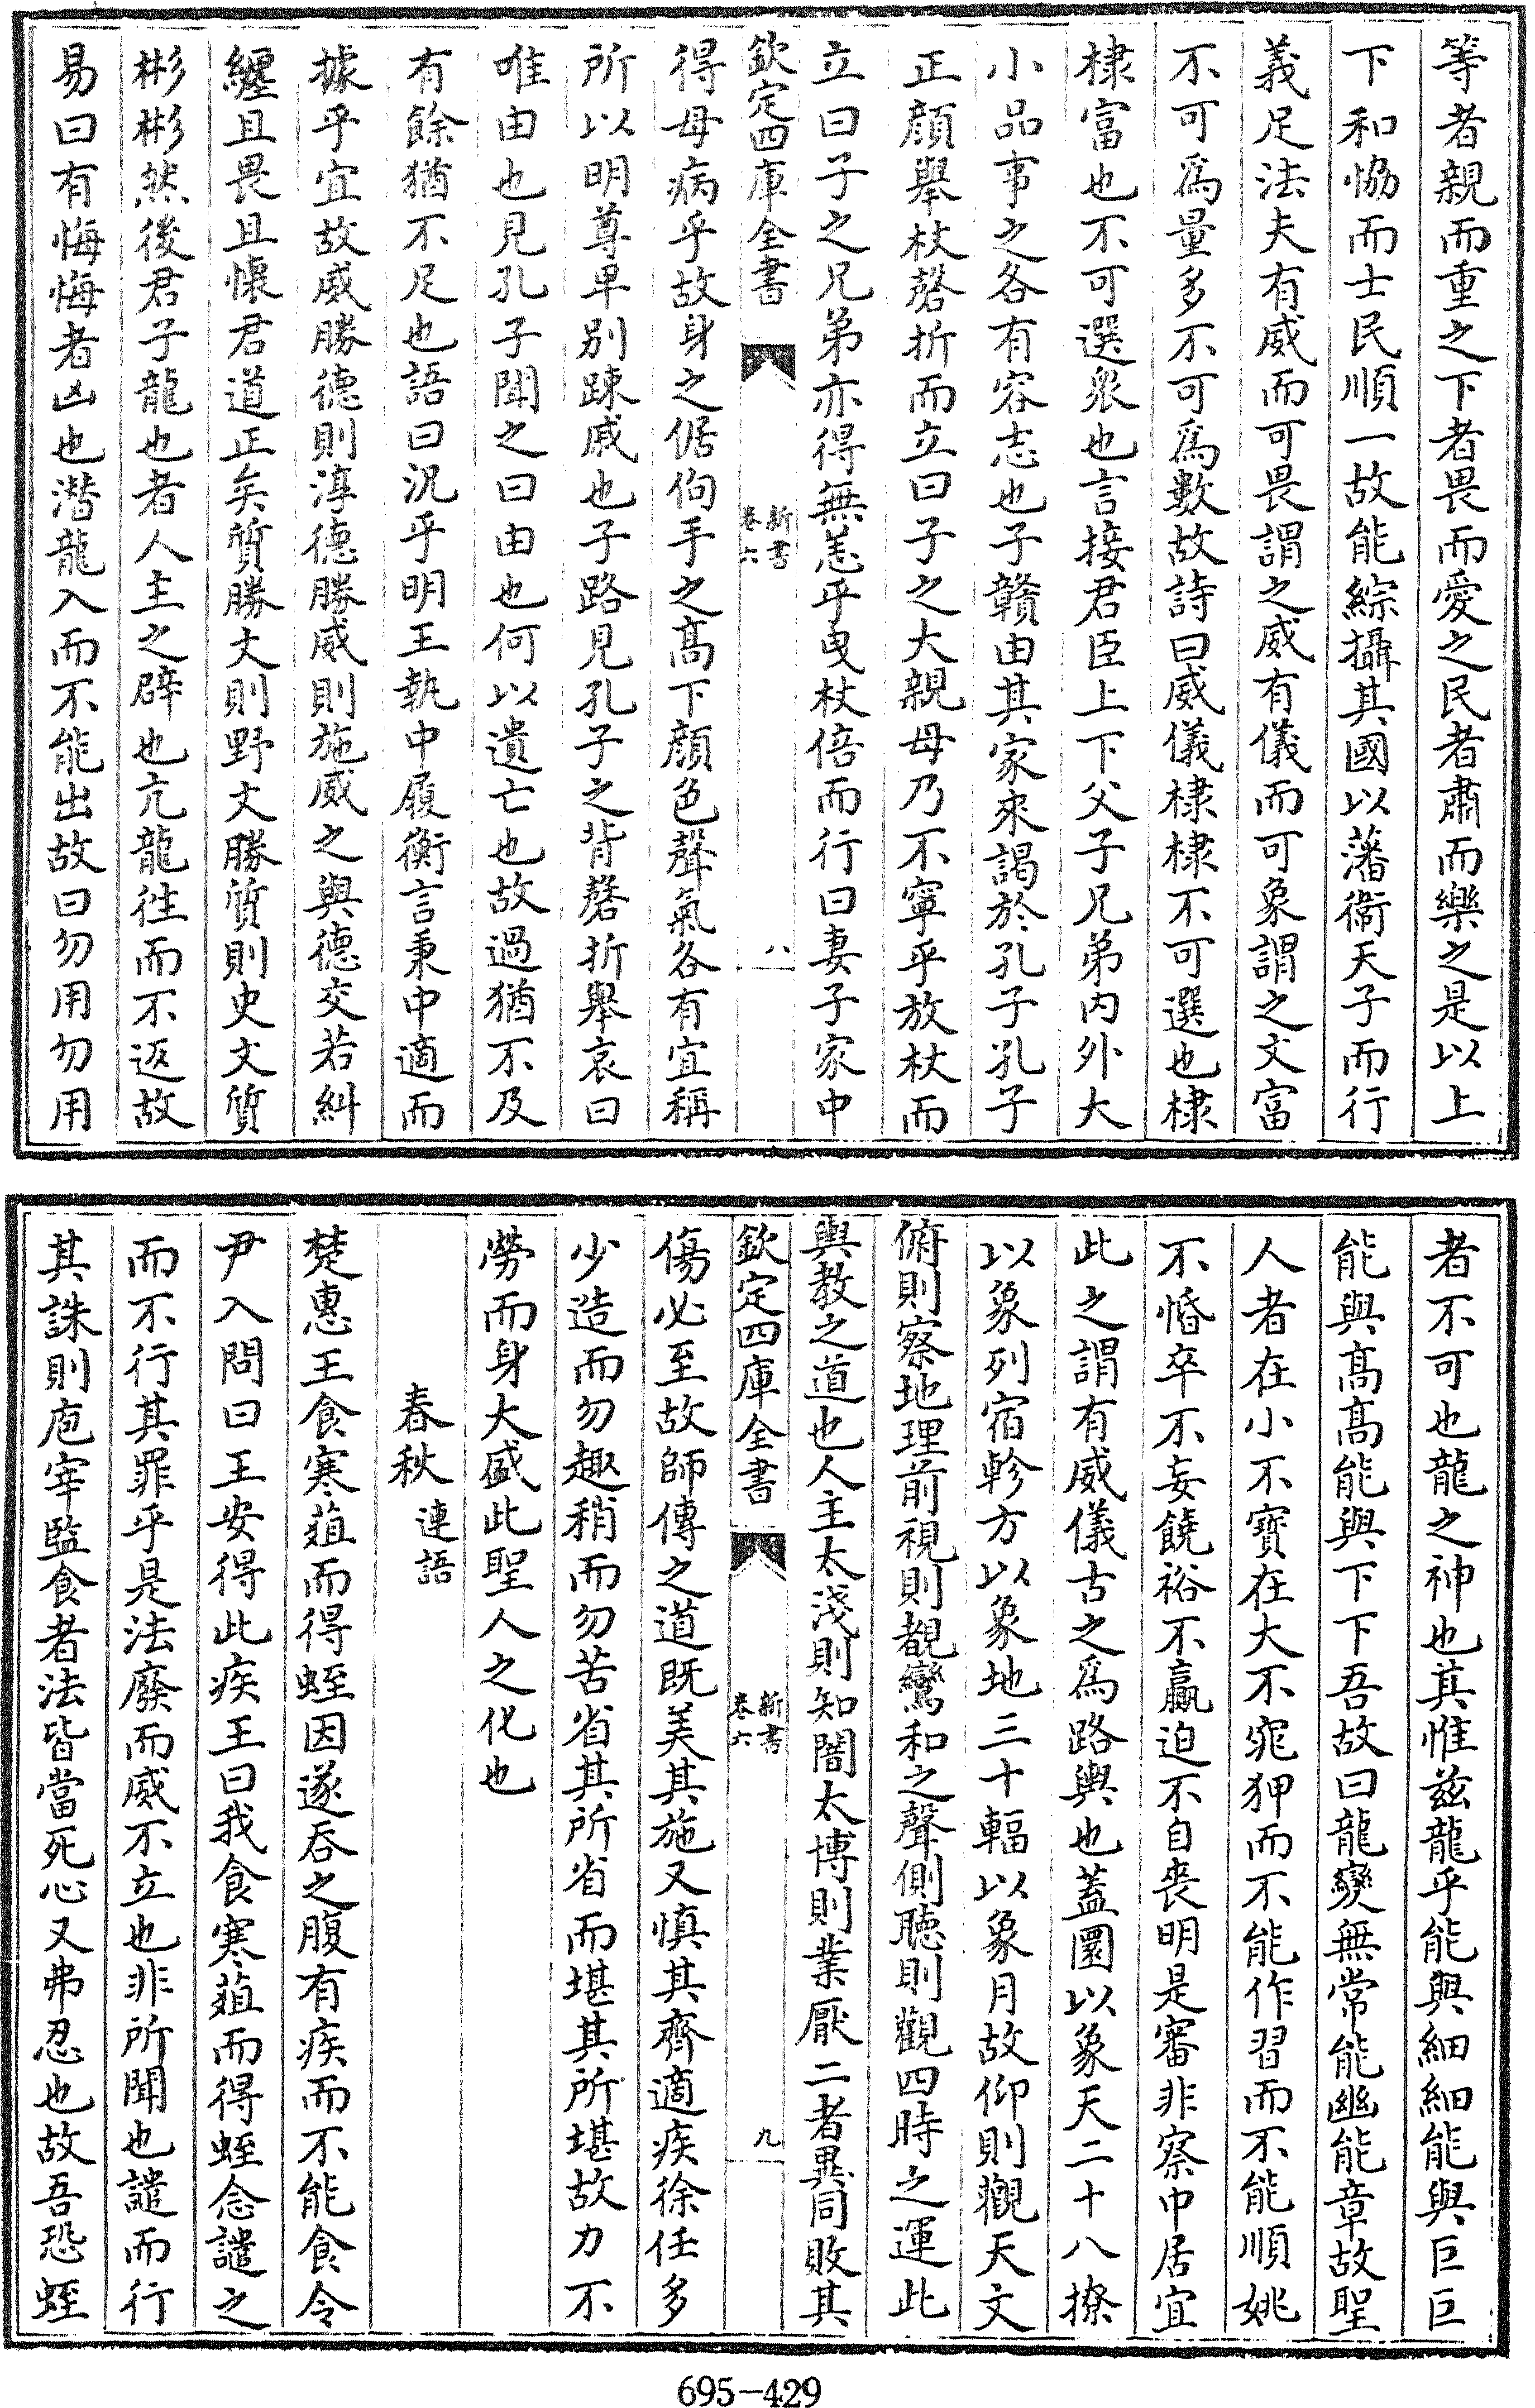 等者親而重之下者畏而愛之民者肅而樂之是以上
下和恊而士民順一故能綜攝其國以藩衞天子而行
義足法夫有威而可畏謂之威有儀而可象謂之文富
不可爲量多不可爲數故詩曰威儀棣棣不可選也棣
棣富也不可選衆也言接君臣上下父子兄弟内外大
小品事之各有容志也子贛由其家來謁於孔子孔子
正顔舉杖磬折而立曰子之大親母乃不寧乎放杖而
立曰子之兄弟亦得無恙乎曳杖倍而行曰妻子家中
欽定四庫全書
新書
卷六
八
得母病乎故身之倨佝手之髙下顔色聲氣各有宜稱
所以明尊卑别踈戚也子路見孔子之背磬折舉哀曰
唯由也見孔子聞之曰由也何以遺亡也故過猶不及
有餘猶不足也語曰況乎明王執中履衡言秉中適而
據乎宜故威勝德則淳德勝威則施威之與德交若糾
纆且畏且懷君道正矣質勝文則野文勝質則史文質
彬彬然後君子龍也者人主之辟也亢龍徃而不返故
易曰有悔悔者凶也潛龍入而不能出故曰勿用勿用
者不可也龍之神也其惟兹龍乎能與細細能與巨巨
能與髙髙能與下下吾故曰龍變無常能幽能章故聖
人者在小不寳在大不窕狎而不能作習而不能順姚
不惛卒不妄饒裕不贏迫不自喪明是審非察中居宜
此之謂有威儀古之爲路輿也蓋圜以象天二十八橑
以象列宿軫方以象地三十輻以象月故仰則觀天文
俯則察地理前視則覩鸞和之聲側聽則觀四時之運此
輿教之道也人主太淺則知闇太博則業厭二者異同敗其
欽定四庫全書
新書
卷六
九
傷必至故師傅之道既美其施又慎其齊適疾徐任多
少造而勿趣稍而勿苦省其所省而堪其所堪故力不
勞而身大盛此聖人之化也
春秋 連語
楚惠王食寒葅而得蛭因遂吞之腹有疾而不能食令
尹入問曰王安得此疾王曰我食寒葅而得蛭念譴之
而不行其罪乎是法廢而威不立也非所聞也譴而行
其誅則庖宰監食者法皆當死心又弗忍也故吾恐蛭
695-429